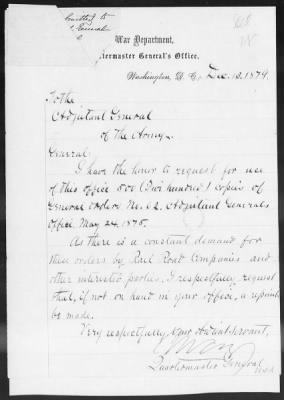 War Department,
Quartermaster General's Office,
Washington, D. C., Dec. 12, 1879.
To the
Adjutant General
of the Army.
General:
I have the honor to request for use
of this office 500 (five hundred) copies of
General Orders No. 62, Adjutant General's
Office, May 24, 1875.
As there is a constant demand for
these orders by Rail Road Companies and
other interested parties, I respectfully request
that, if not on hand in your office, a reprint
be made.
Very respectfully, your obedient servant,
Quartermaster General,
U.S.A.